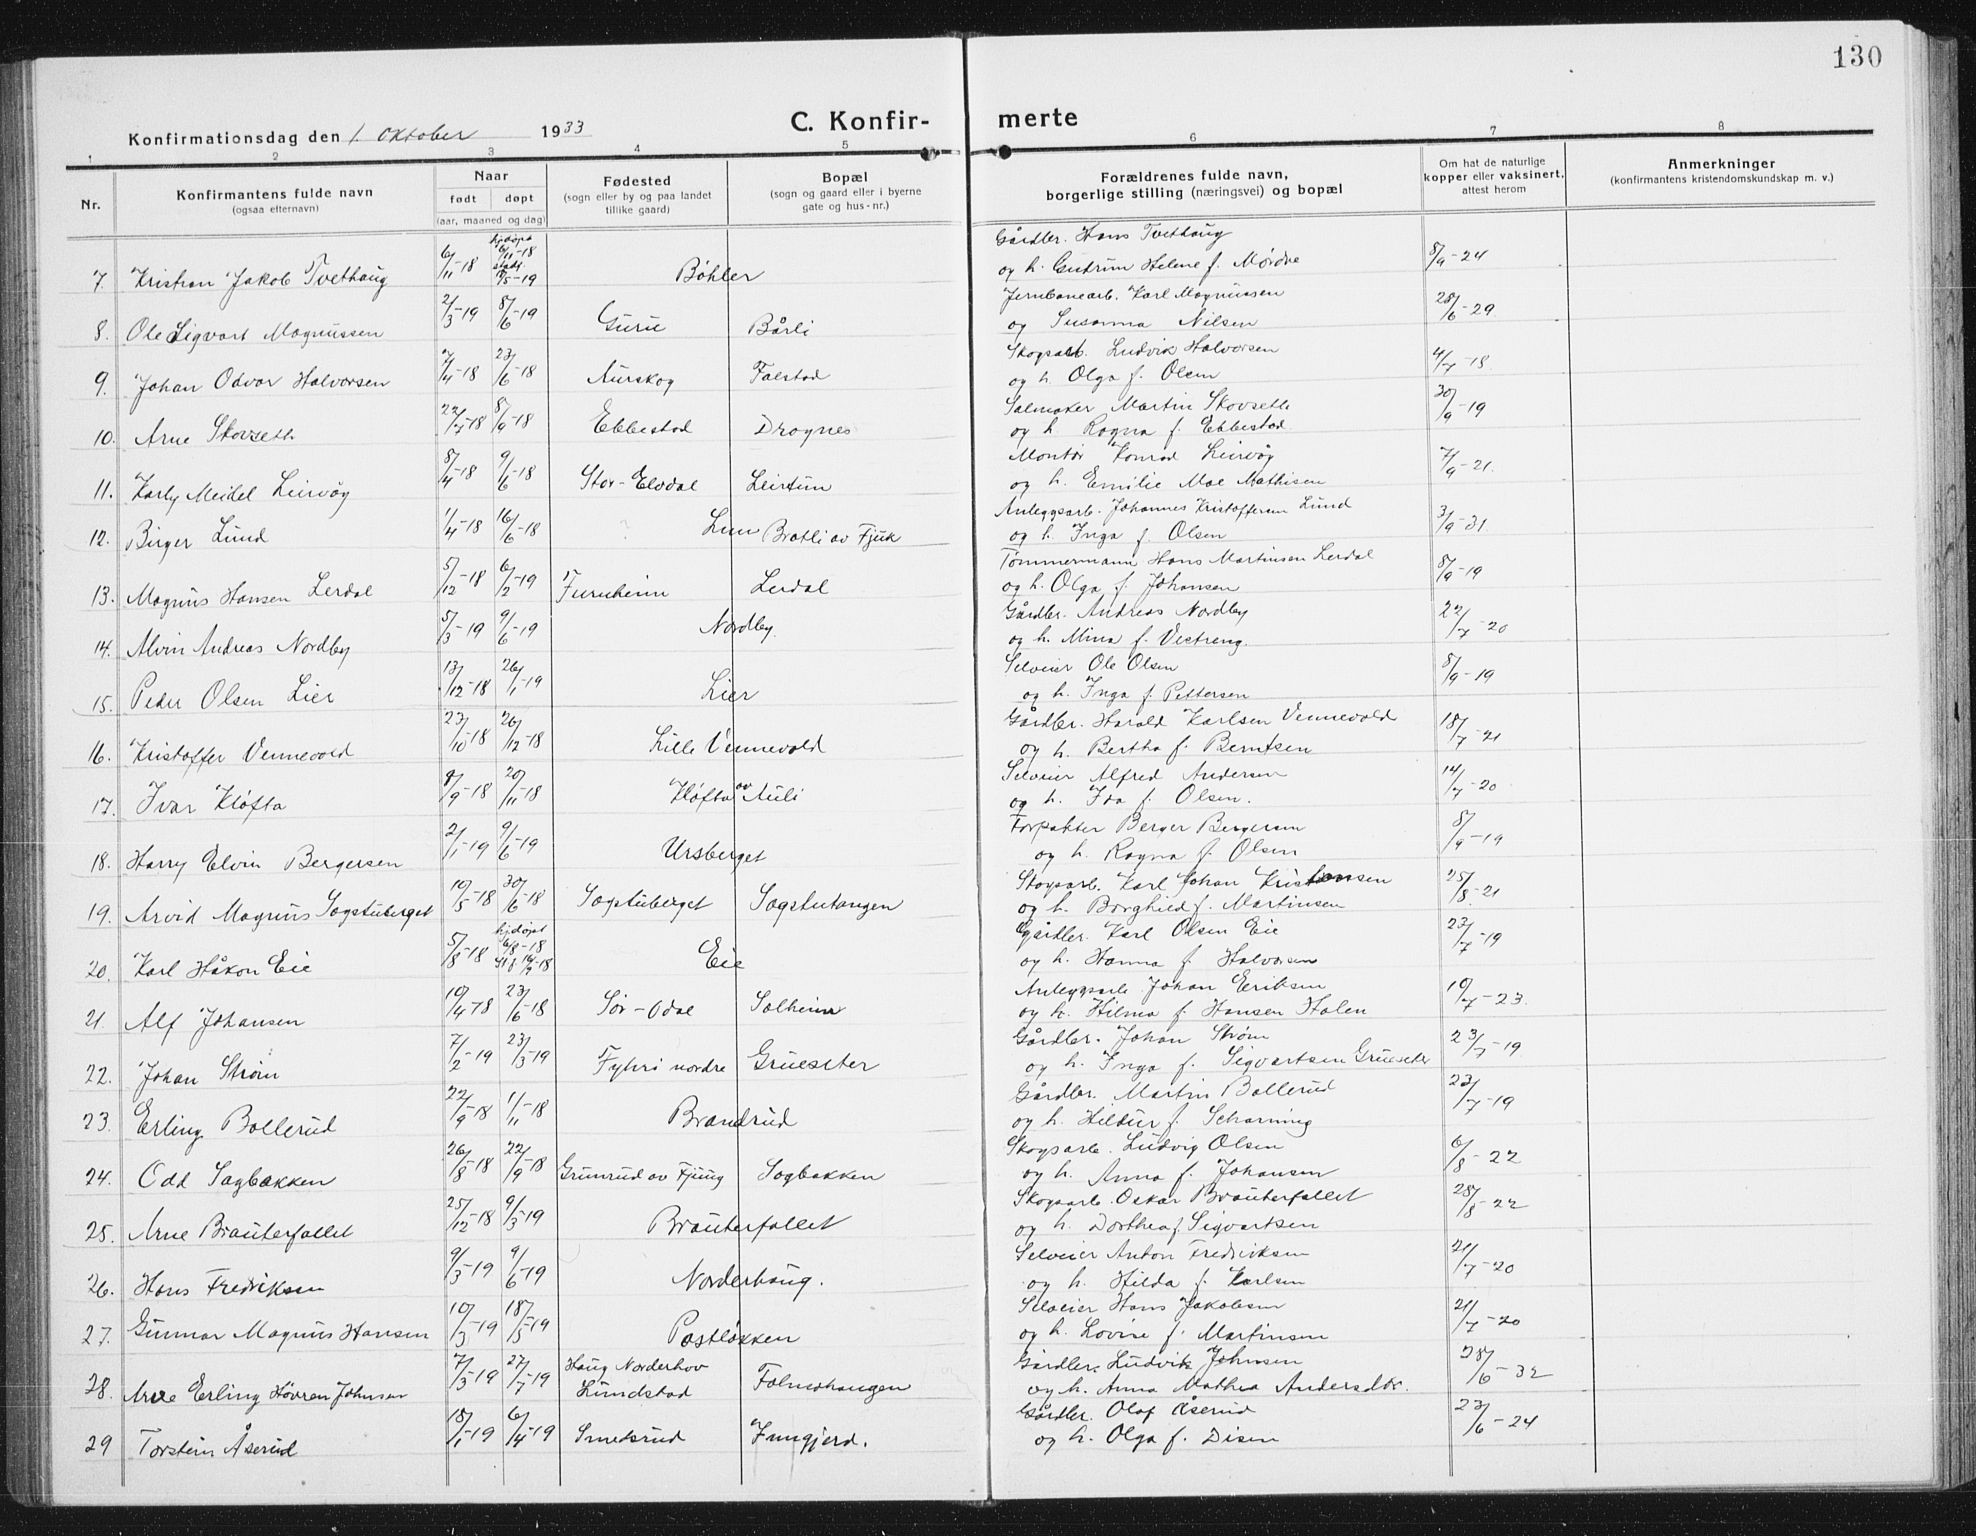 130
C. Konfir- merte
Konfirmationsdag den 1. Oktober 1933
1 2 3 4 5 6 7 8
Nr.
Konfirmantens fulde navn
(ogsaa efternavn)
Naar
født døpt
(aar, maaned og dag)
Fødested
(sogn eller by og paa landet
tillike gaard)
Bopæl
(sogn og gaard eller i byerne
gate og hus-nr.)
Forældrenes fulde navn,
borgerlige stilling (næringsvei) og bopæl
Om hat de naturlige
kopper eller vaksinert,
attest herom
Anmerkninger
(konfirmantens kristendomskundskap m. v.)
7. Kristian Jakob Tvethaug 6/11-18 hj.døpt 6/11-18 stadf. /5-19 Bøhler Gårdbr. Hans Tvethaug
og h. Gudrun Helene f. Mørdre 8/9-24
8. Ole Sigvart Magnussen 2/3-19 8/6-19 Guru Bårli Jernbanearb. Karl Magnussen
og Susanna Nilsen 28/6-29
9. Johan Odvar Halvorsen 7/4-18 23/6-18 Aurskog Falstad Skogsarb. Ludvik Halvorsen
og h. Olga f. Olsen 4/7-18
10. Arne Skovseth 22/7-18 8/9-18 Ebbestad Dragnes Salmaker Martin Skovseth
og h. Ragna f. Ebbestad. 30/9-19
11. Karly Meidel Leirvåg 8/4-18 9/6-18 Stor-Elvdal Leirtun Montør Konrad Leirvåg
og h. Emilie Moe Mathisen 7/9-21.
12. Birger Lund 1/4-18 16/6-18 Lun Bratli av Fjuk Anleggsarb. Johannes Kristoffersen Lund
og h. Inga f. Olsen 3/9-31
13. Magnus Hansen Lerdal 5/12-18 6/2-19 Furuheim Lerdal Tømmermann Hans Martinsen Lerdal
og h. Olga f. Johansen 8/9-19
14. Alvin Andreas Nordby 5/3-19 9/6-19 Nordby. Gårdbr. Andreas Nordby
og h. Mina f. Vestreng. 22/7-20
15. Peder Olsen Lier 13/12-18 26/1-19 Lier Selveier Ole Olsen
og h. Inga f. Pettersen 8/9-19
16. Kristoffer Vennevold 23/10-18 26/12-18 Lille Vennevold Gårdbr. Harald Karlsen Vennevold
og h. Bertha f. Berntsen 18/7-21
17. Ivar Kløfta 8/9-18 20/11-18 Kløfta av Auli Selveier Alfred Andersen
og h. Ida f. Olsen. 14/7-20
18. Harry Elvin Bergersen 2/1-19 9/6-19 Ursberget Forpakter Berger Bergersen
og h. Ragna f. Olsen 8/9-19
19. Arvid Magnus Sagstuberget 10/5-18 30/6-18 Sagstuberget Sagstutangen Skogsarb. Karl Johan Kristiansen
og h. Borghild f. Martinsen 25/8-21
20. Karl Håkon Eie 5/8-18 hj.døpt 6/8-18 Eie Gårdbr. Karl Olsen Eie
og h. Hanna f. Halvorsen 23/7-19
21. Alf Johansen 10/4-18 23/6-18 Sør-Odal Solheim Anleggsarb. Johan Eriksen
og h. Hilma f. Hansen Stalen 10/7-23.
22. Johan Strøm 7/2-19 23/3-19 Fyhri nordre Grueseter Gårdbr. Johan Strøm
og h. Inga f. Sigvartsen Grueseter 23/7-19
23. Erling Bollerud 22/9-18 1/11-18 Brandrud Gårdbr. Martin Bollerud
og h. Hildur f. Scharning 23/7-19
24. Odd Sagbakken 26/8-18 22/9-18 Grinrud av Fjuug Sagbakken Skogsarb. Ludvig Olsen
og h. Anna f. Johansen 6/8-22
25. Arne Brauterfallet 25/12-18 9/3-19 Brauterfallet Skogsarb. Oskar Brauterfallet
og h. Dorthea f. Sigvartsen 28/8-22
26. Hans Fredriksen 9/3-19 9/6-19 Norderhaug. Selveier Anton Fredriksen
og h. Hilda f. Karlsen 21/7-20
27. Gunnar Magnus Hansen 10/3-19 18/5-19 Postløkken Selveier Hans Jakobsen
og h. Lovise f. Martinsen 21/7-20
28. Arne Erling Høvren Johnsen 7/3-19 27/7-19 Haug Norderhov
Lundstad Folmohaugen Gårdbr. Ludvik Johnsen
og h. Anna Mathea Andersdtr. 28/6-32
29 Torstein Åserud 18/1-19 6/4-19 Smedsrud Inngjerd. Gårdbr. Olaf Åserud
og h. Olga f. Disen 23/6-24